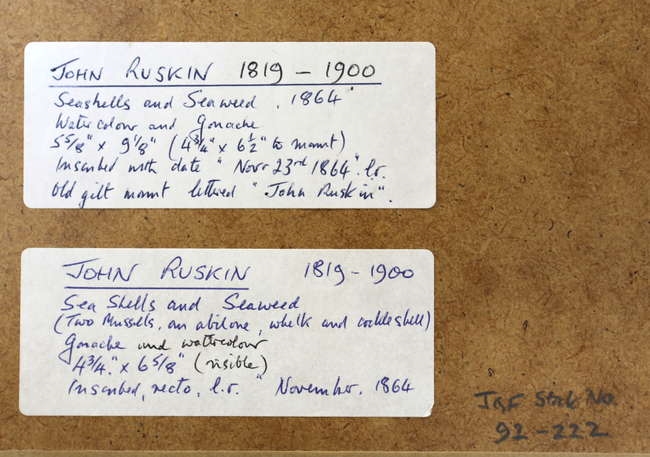 JOHN RUSKIN 1819 – 1900
Seashells and Seaweed, 1864
Watercolour and Gouache
5 5/8" x 9 1/8" (4 3/4" x 6 1/2" to mount)
Inscribed with date "Novr 23rd 1864". l.r.
Old gilt mount lettered "John Ruskin".
JOHN RUSKIN 1819 - 1900
Sea Shells and Seaweed
(Two Mussels, an abilone, whelk and cockleshell)
Gouache and watercolour
4 3/4" x 6 5/8" (visible)
Inscribed, recto, l.r. " November, 1864
J&F Stock No.
92-222